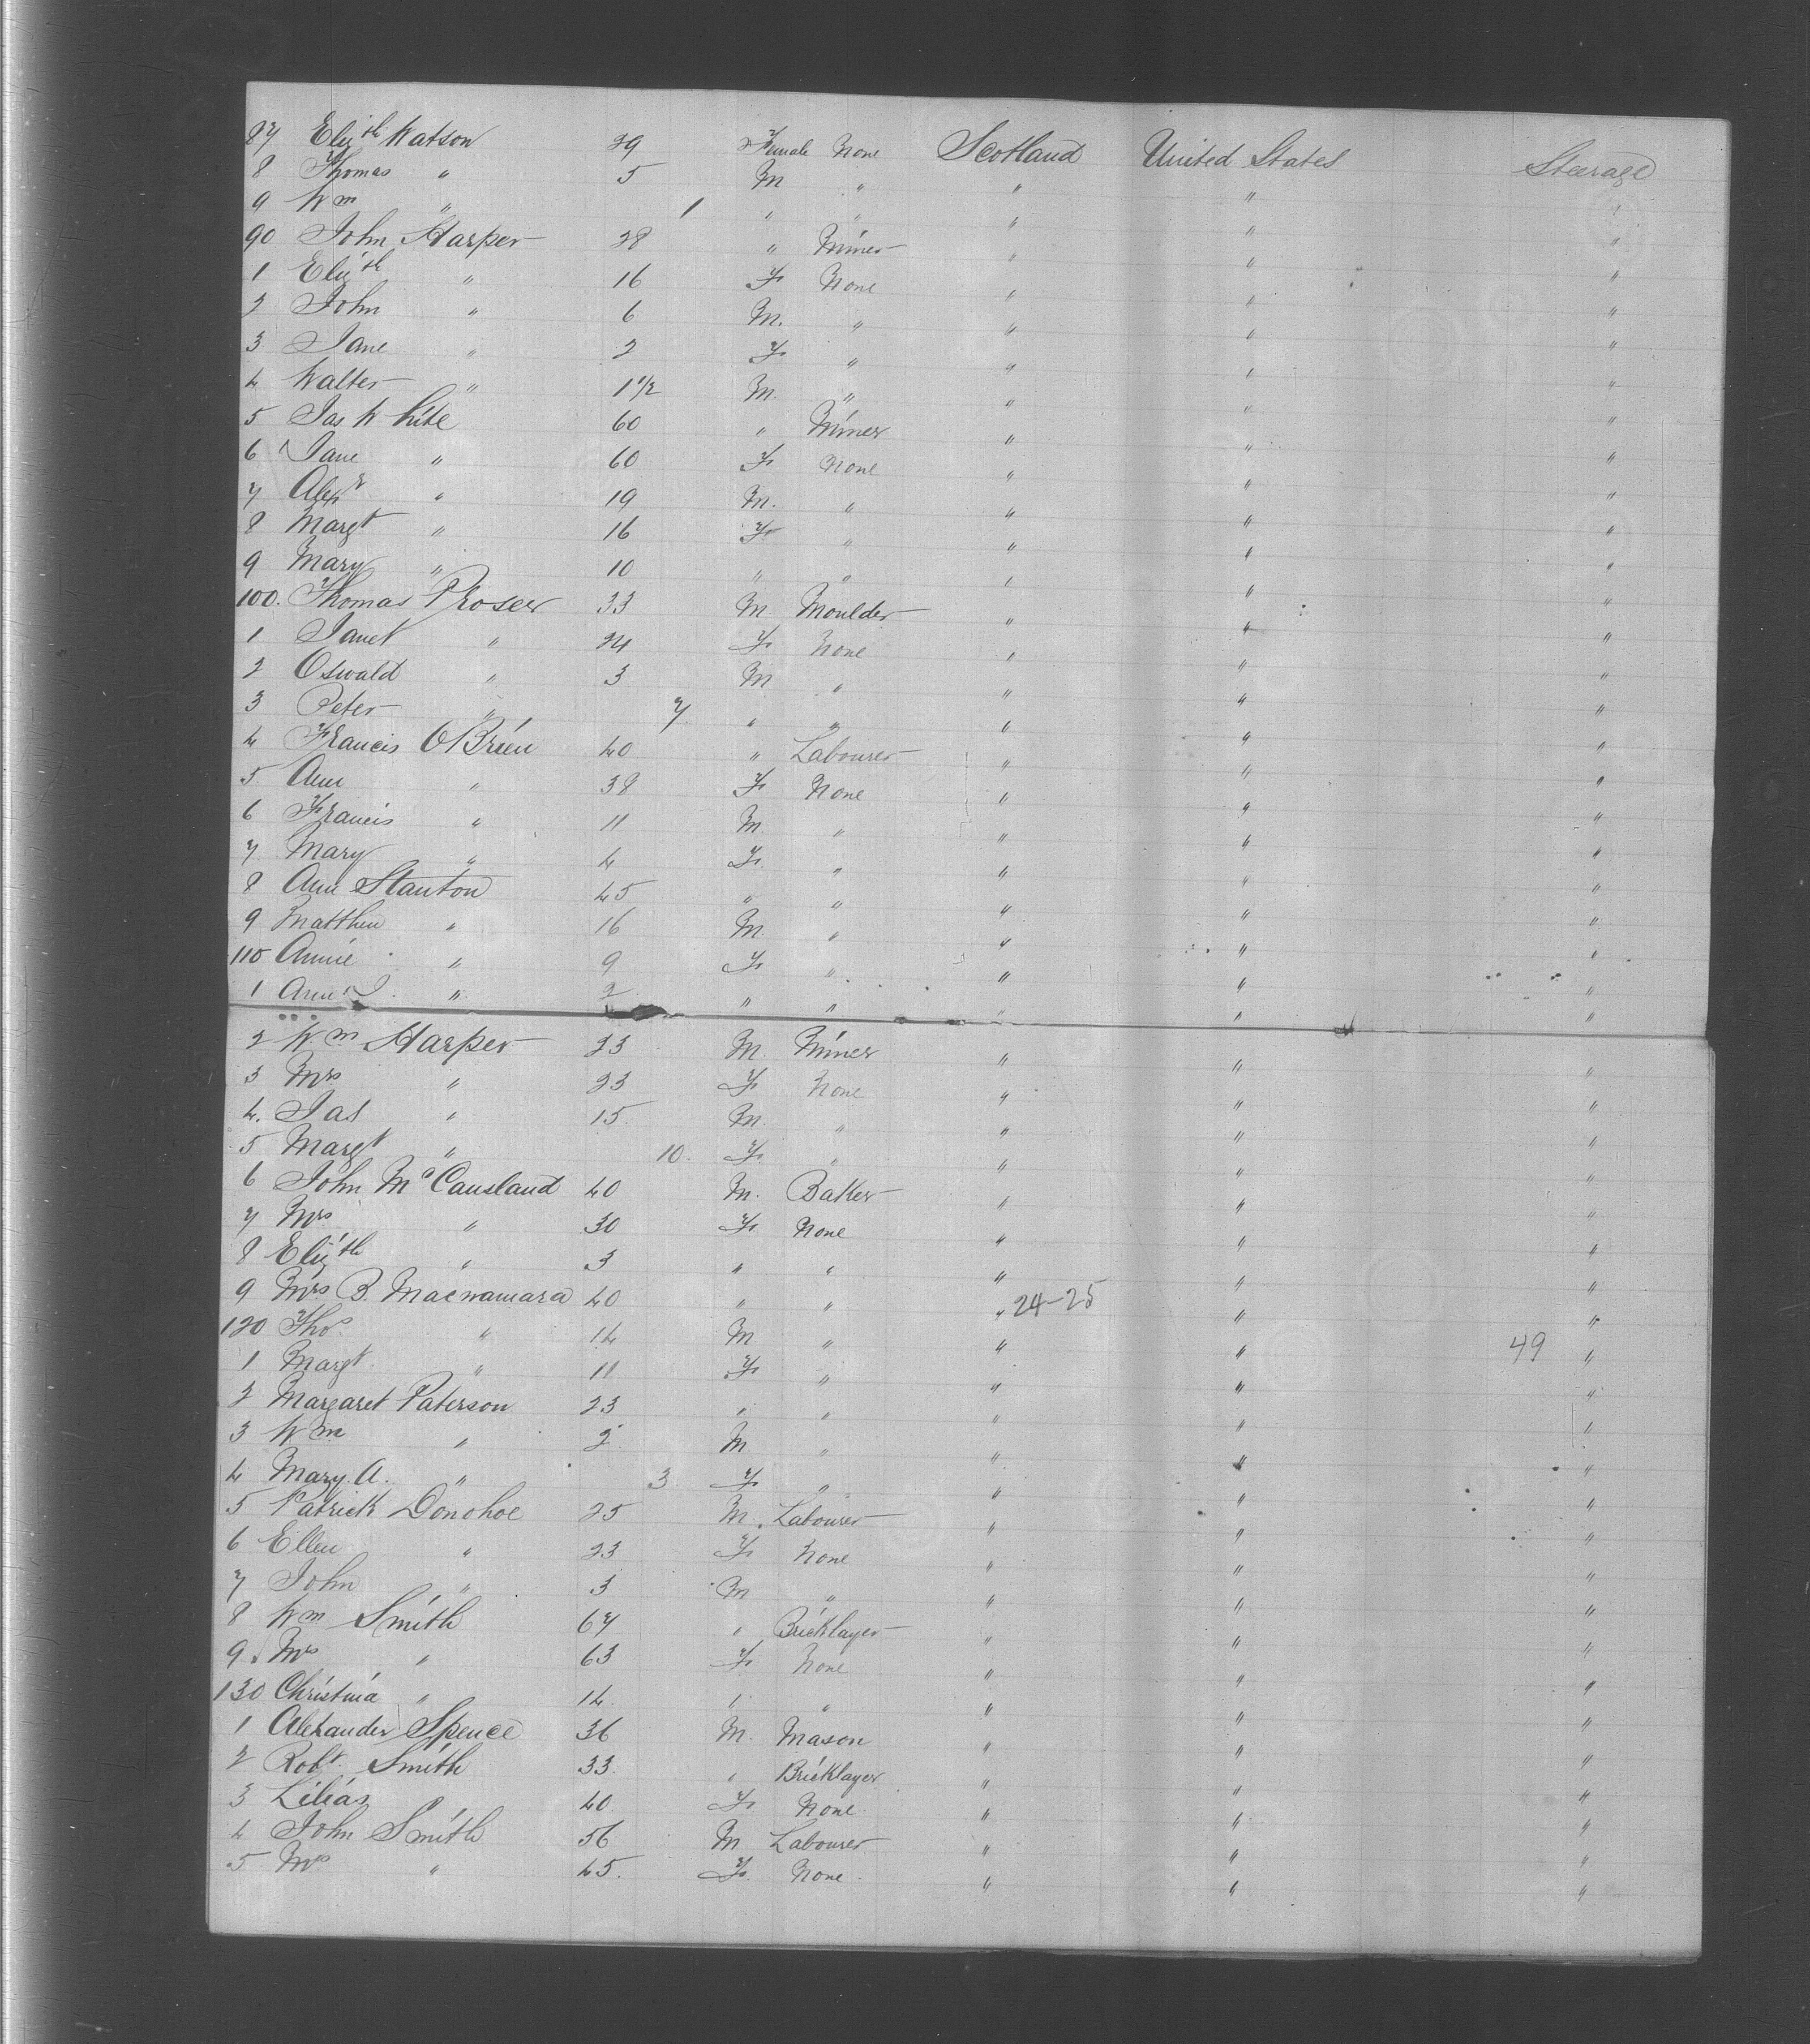 87 Elizth Watson 29 Female None Scotland United States Steerage
8 Thomas " 5 M " " " "
9 Wm " 1 " " " " "
90 John Harper 28 " Miner " " "
1 Elizth " 16 F None " " "
2 John " 6 M. " " " "
3 Jane " 2 F " " " "
4 Walter " 1 1/2 M. " " " "
5 Jas White 60 " Miner " " "
6 Jane " 60 F None " " "
7 Alexr " 19 M. " " " "
8 Margt " 16 F " " " "
9 Mary " 10 " " " " "
100. Thomas Proser 33 M. Moulder " " "
1 Janet " 24 F None " " "
2 Oswald " 3 M " " " "
3 Peter " 7. " " " " "
4 Francis OBrien 40 " Labourer " " "
5 Ann " 38 F None " " "
6 Francis " 11 M. " " " "
7 Mary " 4 F. " " " "
8 Ann Stanton 45 " " " " "
9 Matthew " 16 M. " " " "
110 Annie " 9 F " " " "
1 Ann J. " 2 " " " " "
2 Wm Harper 23 M. Miner " " "
3 Mrs " 23 F None " " "
4. Jas " 15. M. " " " "
5 Margt " 10. F. " " " "
6 John McCausland 40 M. Baker " " "
7 Mrs " 30 F None " " "
8 Elizth " 3 " " " " "
9 Mrs B. Macnamara 40 " " " 24-25 " "
120 Thos " 14 M " " " 49 "
1 Margt " 11 F " " " "
2 Margaret Paterson 23 " " " " "
3 Wm " 2 M " " " "
4 Mary A. " 3 F " " " "
5 Patrick Donohoe 25 M. Labourer " " "
6 Ellen " 23 F None " " "
7 John " 3 M " " " "
8 Wm Smith 67 " Bricklayer " " "
9. Mrs " 63 F None " " "
130 Christina " 14. " " " " "
1 Alexander Spence 36 M. Mason " " "
2 Robt. Smith 33. " Bricklayer " " "
3 Lilias " 40 F None. " " "
4 John Smith 56 M Labourer " " "
5 Mrs " 45. F. None. " " "